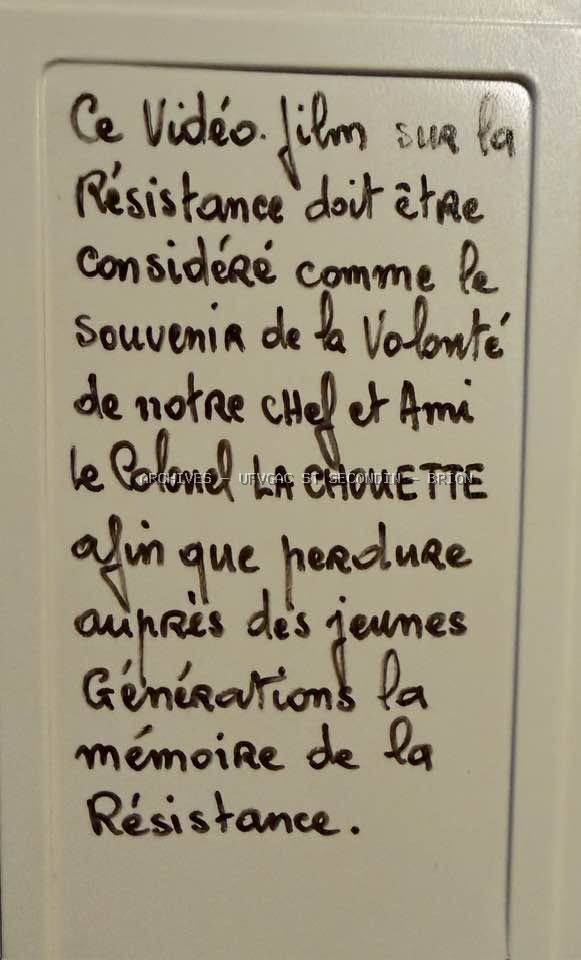 Ce Vidéo.film sur la
Résistance doit être
considéré comme le
souvenir de la Volonté
de notre CHef et Ami
le Colonel LA CHOUETTE
ARCHIVES - UFVGAC ST SECONDIN - BRION
afin que perdure
auprès des jeunes
Générations la
mémoire de la
Résistance.